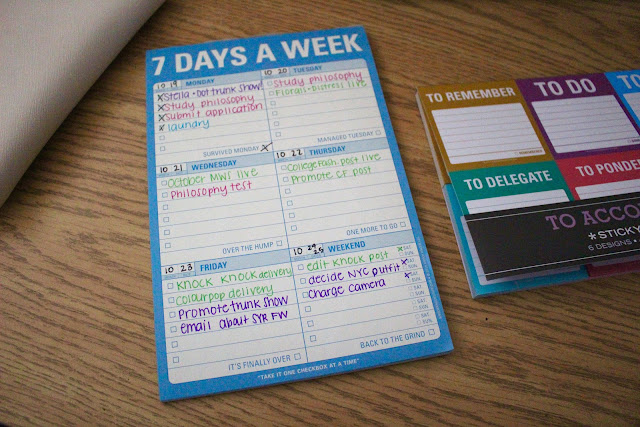 7 DAYS A WEEK
10 19 MONDAY
x Stella + Dot trunk show!
x Study philosophy
x Submit application
x laundry
SURVIVED MONDAY x
10 20 TUESDAY
Study philosophy
live
MANAGED TUESDAY
10 21 WEDNESDAY
October MWS live
Philosophy test
OVER THE HUMP
10 22 THURSDAY
CollegeFash post live
Promote CF post
ONE MORE TO GO
10 23 FRIDAY
KNOCK KNOCK delivery
colourpop delivery
Promote trunk show
email about SYR FW
IT'S FINALLY OVER
10 WEEKEND
edit KNOCK post x SAT. SUN.
decide NYC outfit x SAT. SUN.
Charge camera x SAT. SUN.
SAT. SUN.
SAT. SUN.
SAT. SUN.
BACK TO THE GRIND
"TAKE IT ONE CHECKBOX AT A TIME"
TO REMEMBER
TO DO
TO DELEGATE
TO PONDE
TO ACCO
*STICKY
6 DESIGNS